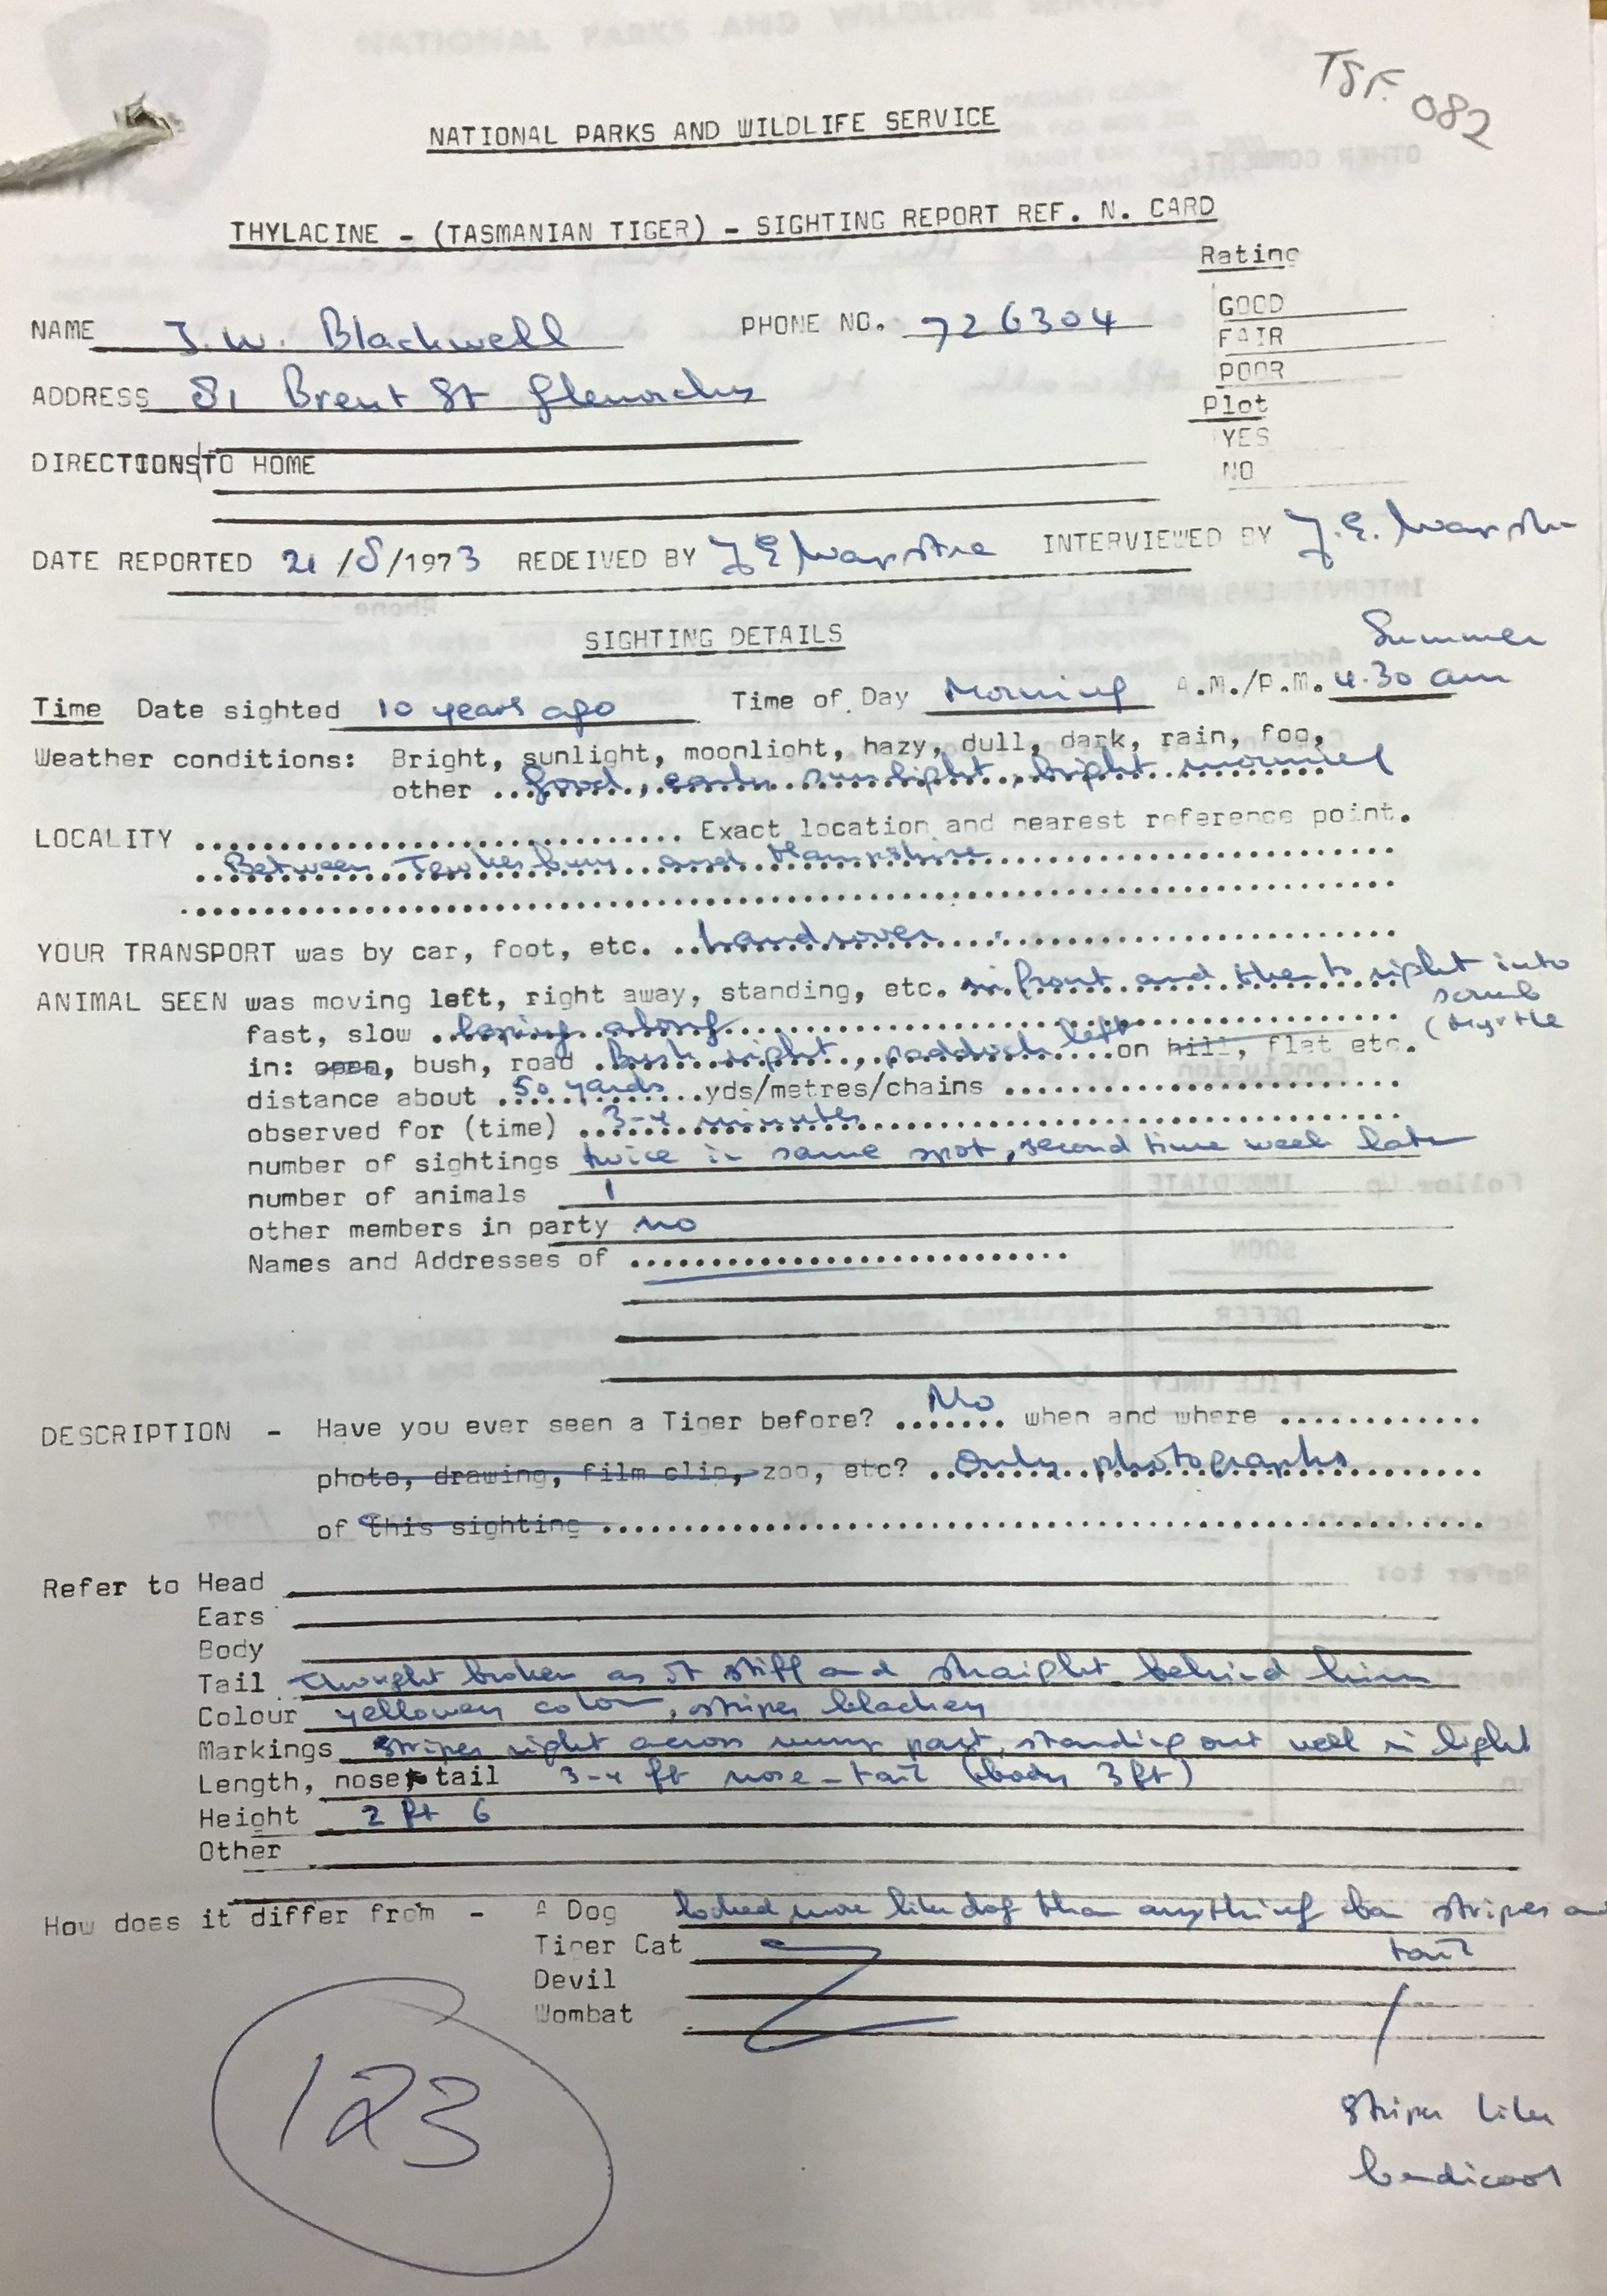 TSF. 082
NATIONAL PARKS AND WILDLIFE SERVICE
THYLACINE - (TASMANIAN TIGER) - SIGHTING REPORT REF. N. CARD
Rating
GOOD
FAIR
POOR
Plot
YES
NO
NAME J.W. Blackwell PHONE NO. 726304
ADDRESS 81 Brent St Glenorchy
DIRECTIONS TO HOME
DATE REPORTED 21/8/1973 REDEIVED BY J E INTERVIEWED BY J.E.
SIGHTING DETAILS
Summer
Time Date sighted 10 years ago Time of Day Morning A.M./P.M. 4.30 am
Weather conditions: Bright, sunlight, moonlight, hazy, dull, dark, rain, fog,
other good, early sunlight, bright morning
LOCALITY Exact location and nearest reference point.
Between Tewkesbury and Hampshire
YOUR TRANSPORT was by car, foot, etc. Landrover
ANIMAL SEEN was moving left, right away, standing, etc. in front and then to right into
scrub
(myrtle
fast, slow loping along
in: open, bush, road Bush right, paddock left on hill, flat etc.
distance about 50 yards yds/metres/chains
observed for (time) 3-4 minutes
number of sightings twice in same spot, second time week late
number of animals 1
other members in party no
Names and Addresses of
DESCRIPTION - Have you ever seen a Tiger before? No when and where
photo, drawing, film clip, zoo, etc? Only photographs
of this sighting
Refer to Head
Ears
Body
Tail thought broken as it stiff and straight behind him
Colour yellowey colour, stripes blackey
Markings stripes right across rump part, standing out well in light
Length, nose tail 3-4 ft nose-tail (body 3ft)
Height 2 ft 6
Other
How does it differ from - A Dog looked more like dog than anything bar stripes and
tail
Tiger Cat
Devil
Wombat
stripes like
bandicoot
123